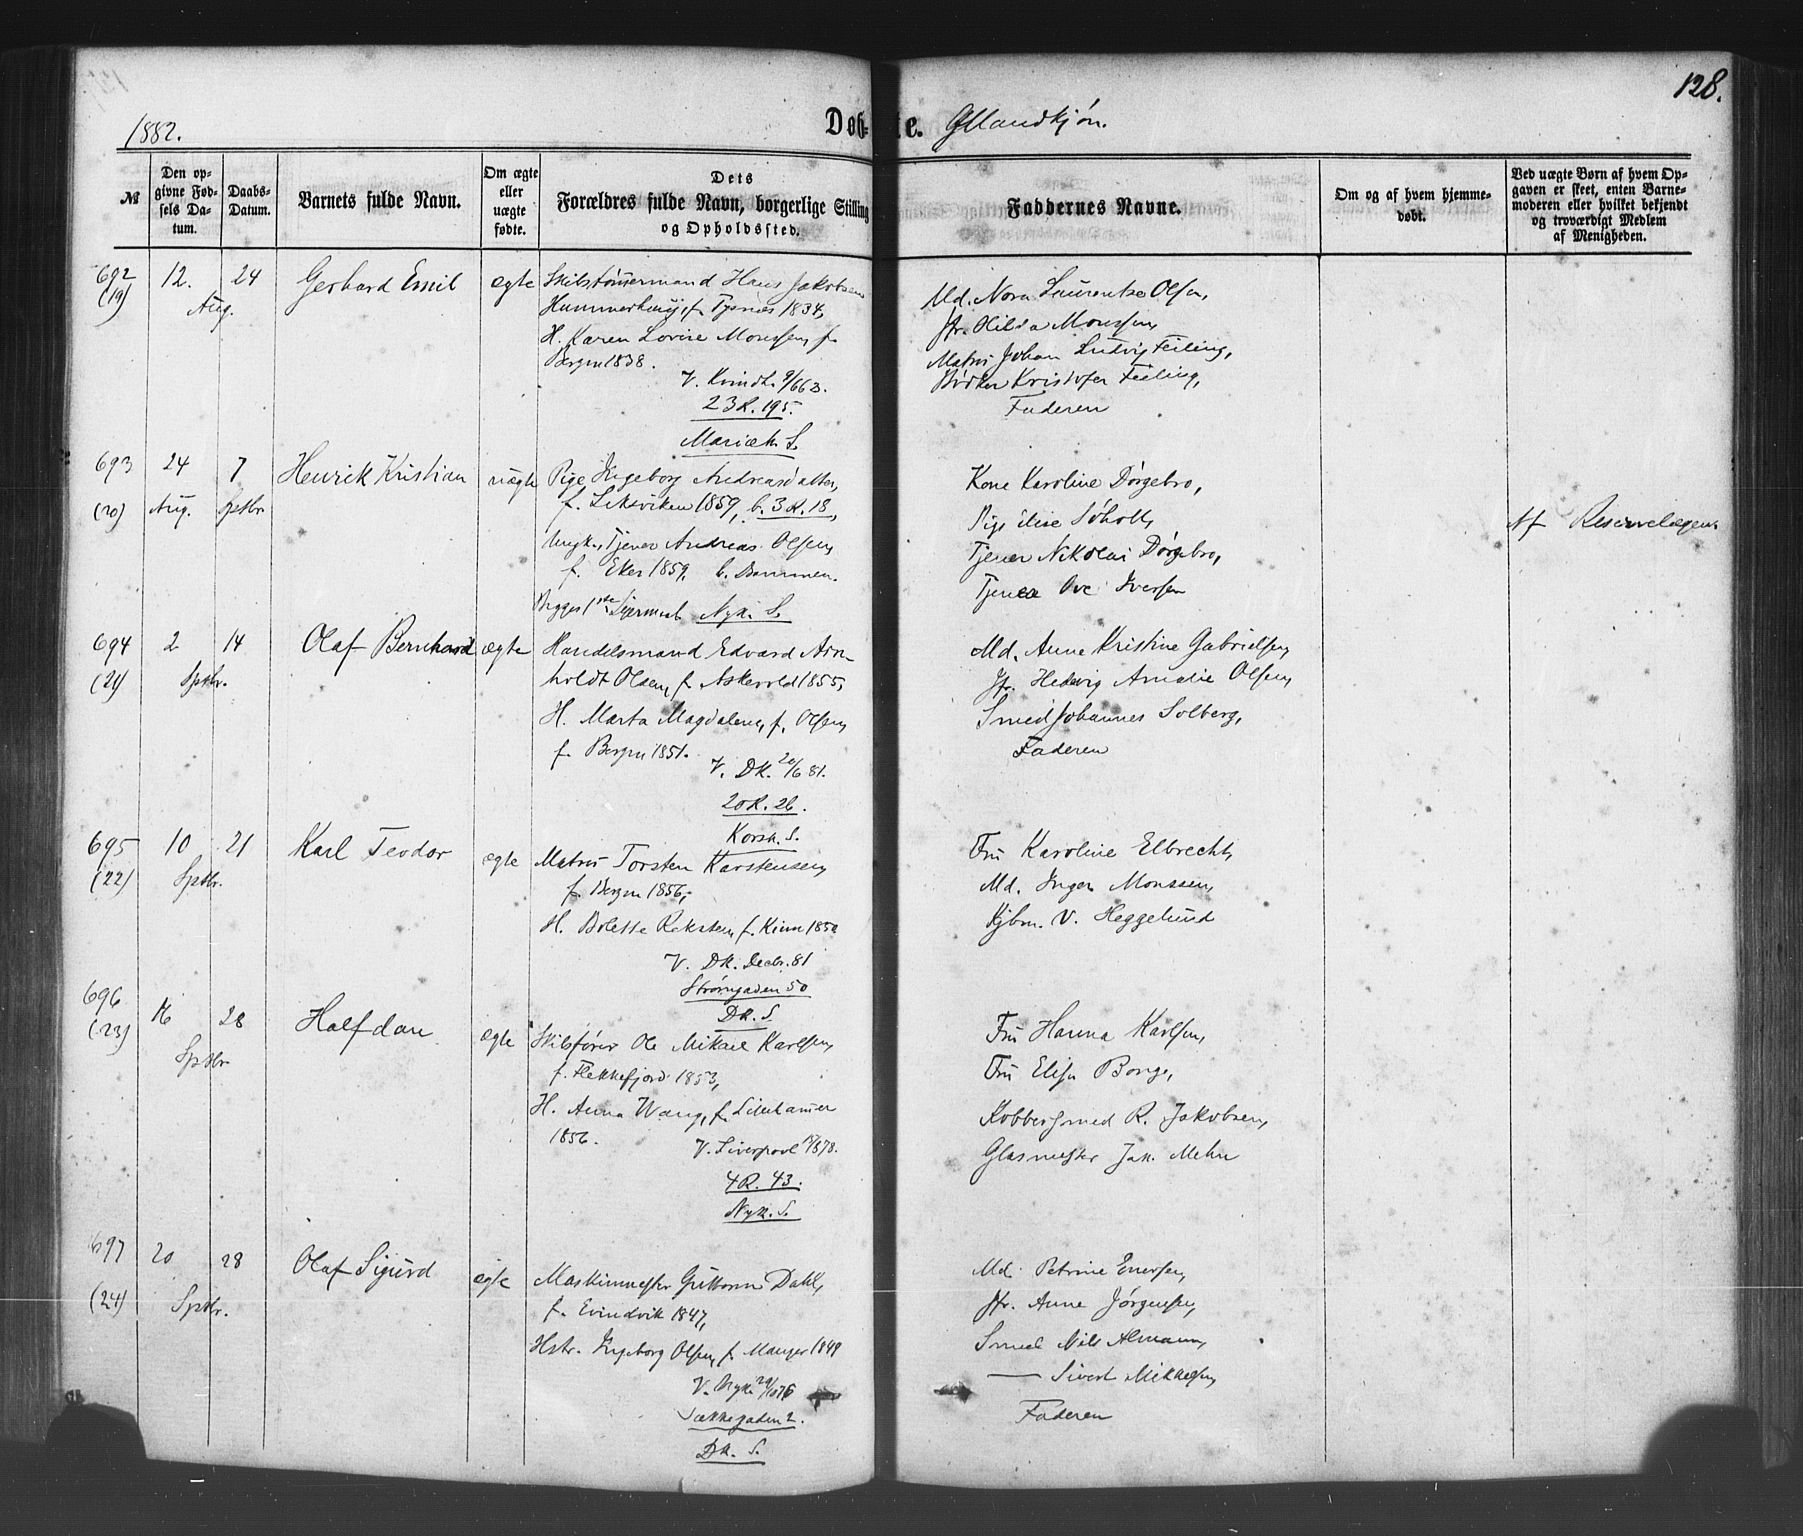 128.
1882. Døb-te. Mandkjøn.
№
Den opgivne Fødsels Datum.
Daabs-Datum.
Barnets fulde Navn.
Om ægte eller uægte fødte.
Dets Forældres fulde Navn, borgerlige Stilling og Opholdssted.
Faddernes Navne.
Om og af hvem hjemmedøbt.
Ved uægte Børn af hvem Opgaven er skeet, enten Barnemoderen eller hvilket bekjendt og troværdigt Medlem af Menigheden.
692 (19)
12. 24 Aug.
Gerhard Emil
ægte
Skibstømmermand Hans Jakobsen
f. Tysnæs 1834,
H. Karen Lovise Monssen, f.
Bergen 1838.
V. 9/6 63.
23 R. 195.
Mariæk. S.
Md. Nora Laurentze Olsen,
Jfr. Hilda Monssen,
Matros Johan Ludvig Feiling,
Bødker Kristofer Feiling,
Faderen
693 (20)
24 Aug.
7 Sptbr.
Henrik Kristian
uægte
Pige Ingeborg Andreasdatter,
f. Leksviken 1859, b. 3 R. 18,
Ungk. Tjener Andreas Olsen,
f. Eker 1859, b. Drammen.
Begges 1ste Leierm. Nyk. S.
Kone Karoline Dørgebro,
Pige Elise Søholt,
Tjener Nikolai Dørgebro,
Tjener Ove Iversen
Af Reservelægen.
694 (21)
2 14 Sptbr.
Olaf Bernhard
ægte
Handelsmand Edvard Arn-
holdt Olsen, f. Askevold 1855,
H. Marta Magdalena, f. Olsen,
f. Bergen 1851.
V. DK. 20/6 81.
20 R. 26.
Korsk. S.
Md. Anne Kristine Gabrielsen,
Jfr. Hedvig Amalie Olsen,
Smed Johannes Solberg,
Faderen
695 (22)
10 21 Sptbr.
Karl Teodor
ægte
Matros Torsten Karstensen,
f. Bergen 1856,
H. Bolette Reksten, f. Kinn 1850
V. DK. Decbr. 81
Strømgaden 50
DK. S.
Fru Karoline Elbrecht,
Md. Inger Monssen,
Kjbm. V. Heggelund
696 (23)
16 28 Sptbr.
Halfdan
ægte
Skibsfører Ole Mikael Karlsen,
f. Flekkefjord 1853,
H. Anna Wang, f. Lillehamer
1856.
V. Liverpool 78.
4 R. 43.
Nyk. S.
Fru Hanna Karlsen,
Fru Elisa Bonge,
Kobbersmed R. Jakobsen,
Glasmester Jak. Mehn
697 (24)
20 28 Sptbr.
Olaf Sigurd
ægte
Maskinmester Guttorm Dahl,
f. Evindvik 1847,
Hstr. Ingeborg Olsen, f. Manger 1849
V. Nyk. 29/10 76
Sækkegaden 2.
DK. S.
Md. Petrine Enersen,
Jfr. Anne Jørgensen,
Smed Nils Almann,
— Sivert Mikkelsen,
Faderen